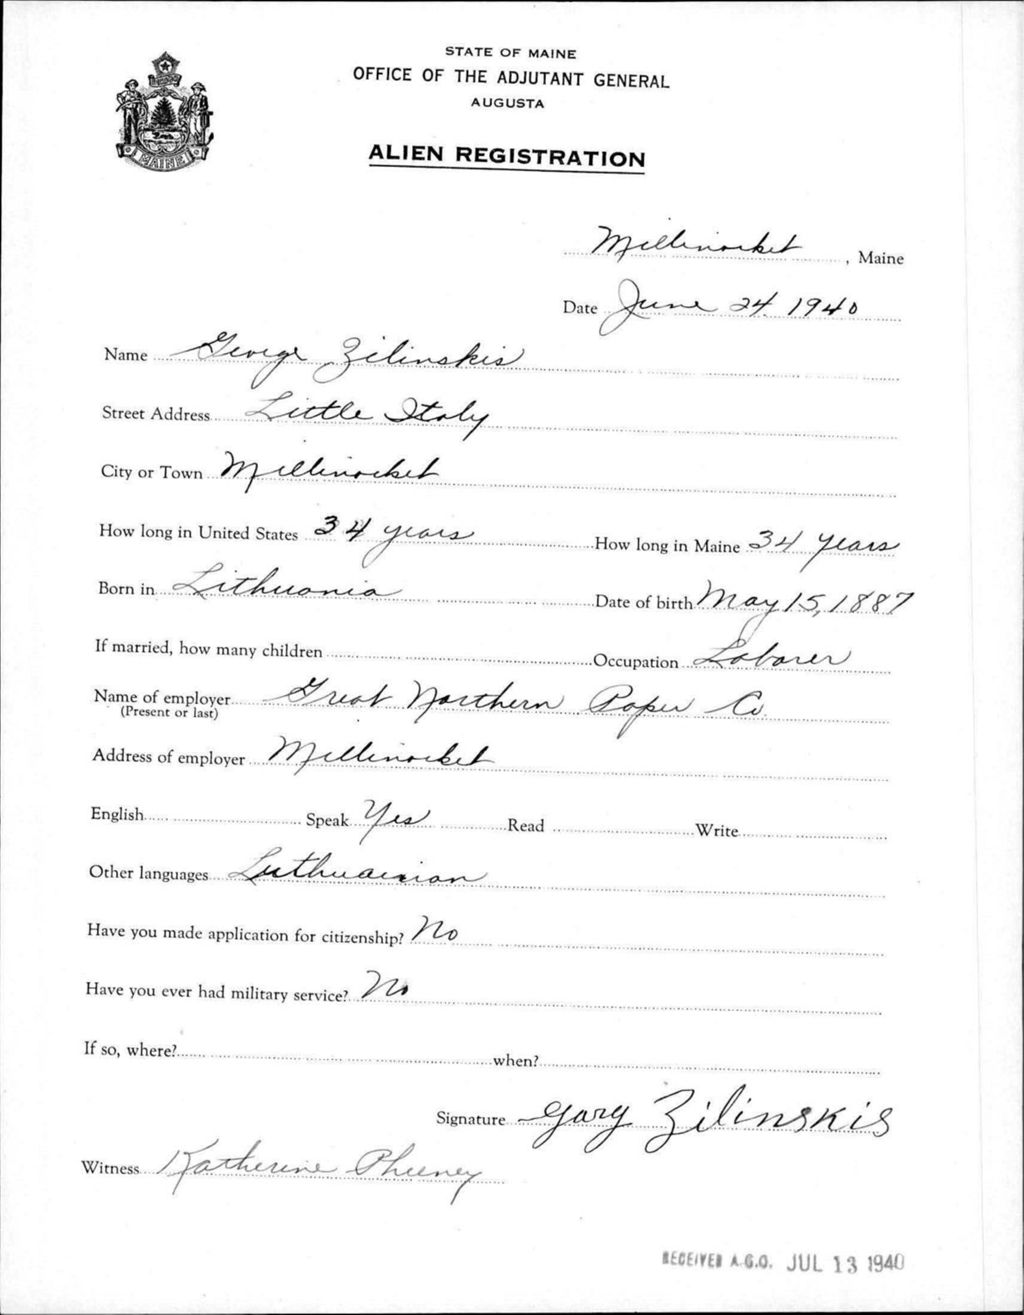 STATE OF MAINE
OFFICE OF THE ADJUTANT GENERAL
AUGUSTA
ALIEN REGISTRATION
MAINE
Millinocket, Maine
Date June 24 1940
Name George Zilinskis
Street Address Little Italy
City or Town Millinocket
How long in United States 34 years How long in Maine 34 years
Born in Lithuania Date of birth May 15, 1887
If married, how many children Occupation Laborer
Name of employer Great Northern Paper Co.
(Present or last)
Address of employer Millinocket
English Speak Yes Read Write
Other languages Luthuainian
Have you made application for citizenship? No
Have you ever had military service? No
If so, where? when?
Signature Gory Zilinskis
Witness Katherine Pheeney
RECEIVED A.G.O. JUL 13 1940